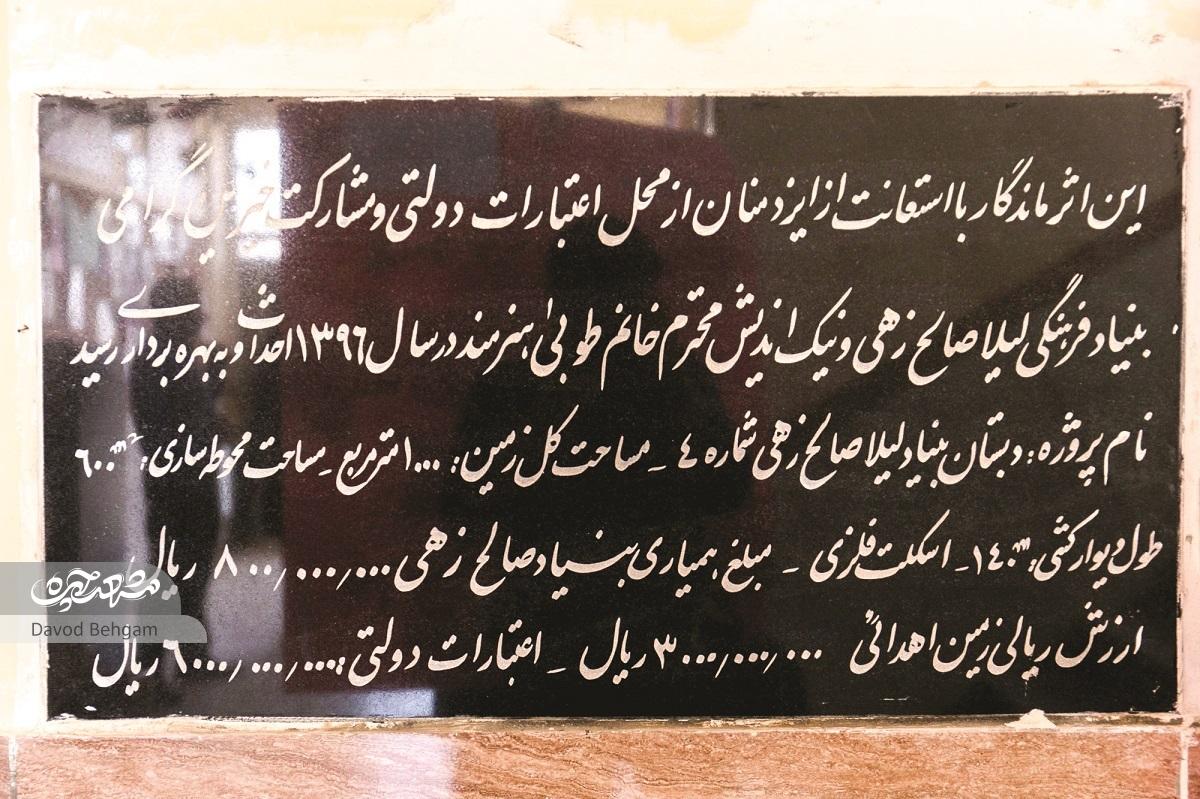 این اثر ماندگار با استعانت از ایزد منان از محل اعتبارات دولتی و مشارکت خیرین گرامی
بنیاد فرهنگی لیلا صالح زهی و نیک اندیش محترم خانم طوبی هنرمند در سال ۱۳۹۶ احداث و به بهره برداری رسید
نام پروژه: دبستان بنیاد لیلا صالح زهی شماره ۴ ـ مساحت کل زمین: ۱۰۰۰ مترمربع ـ مساحت محوطه سازی: ۶۰۰m²
طول دیوارکشی: ۱۴۰m ـ اسکلت فلزی ـ مبلغ همیاری بنیاد صالح زهی ۸۰۰٫۰۰۰٫۰۰۰ ریال
ارزش ریالی زمین اهدائی ۳۰۰۰٫۰۰۰٫۰۰۰ ریال ـ اعتبارات دولتی: ۶۰۰۰٫۰۰۰٫۰۰۰ ریال
شهرآرا
Davod Behgam